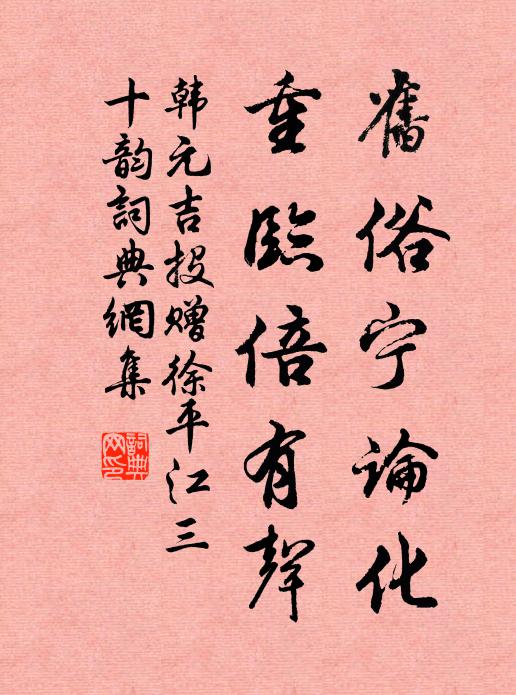 舊俗宁論化
重臨倍有聲
韩元吉投赠徐平江三
十韵詞典網集
詞典
网印